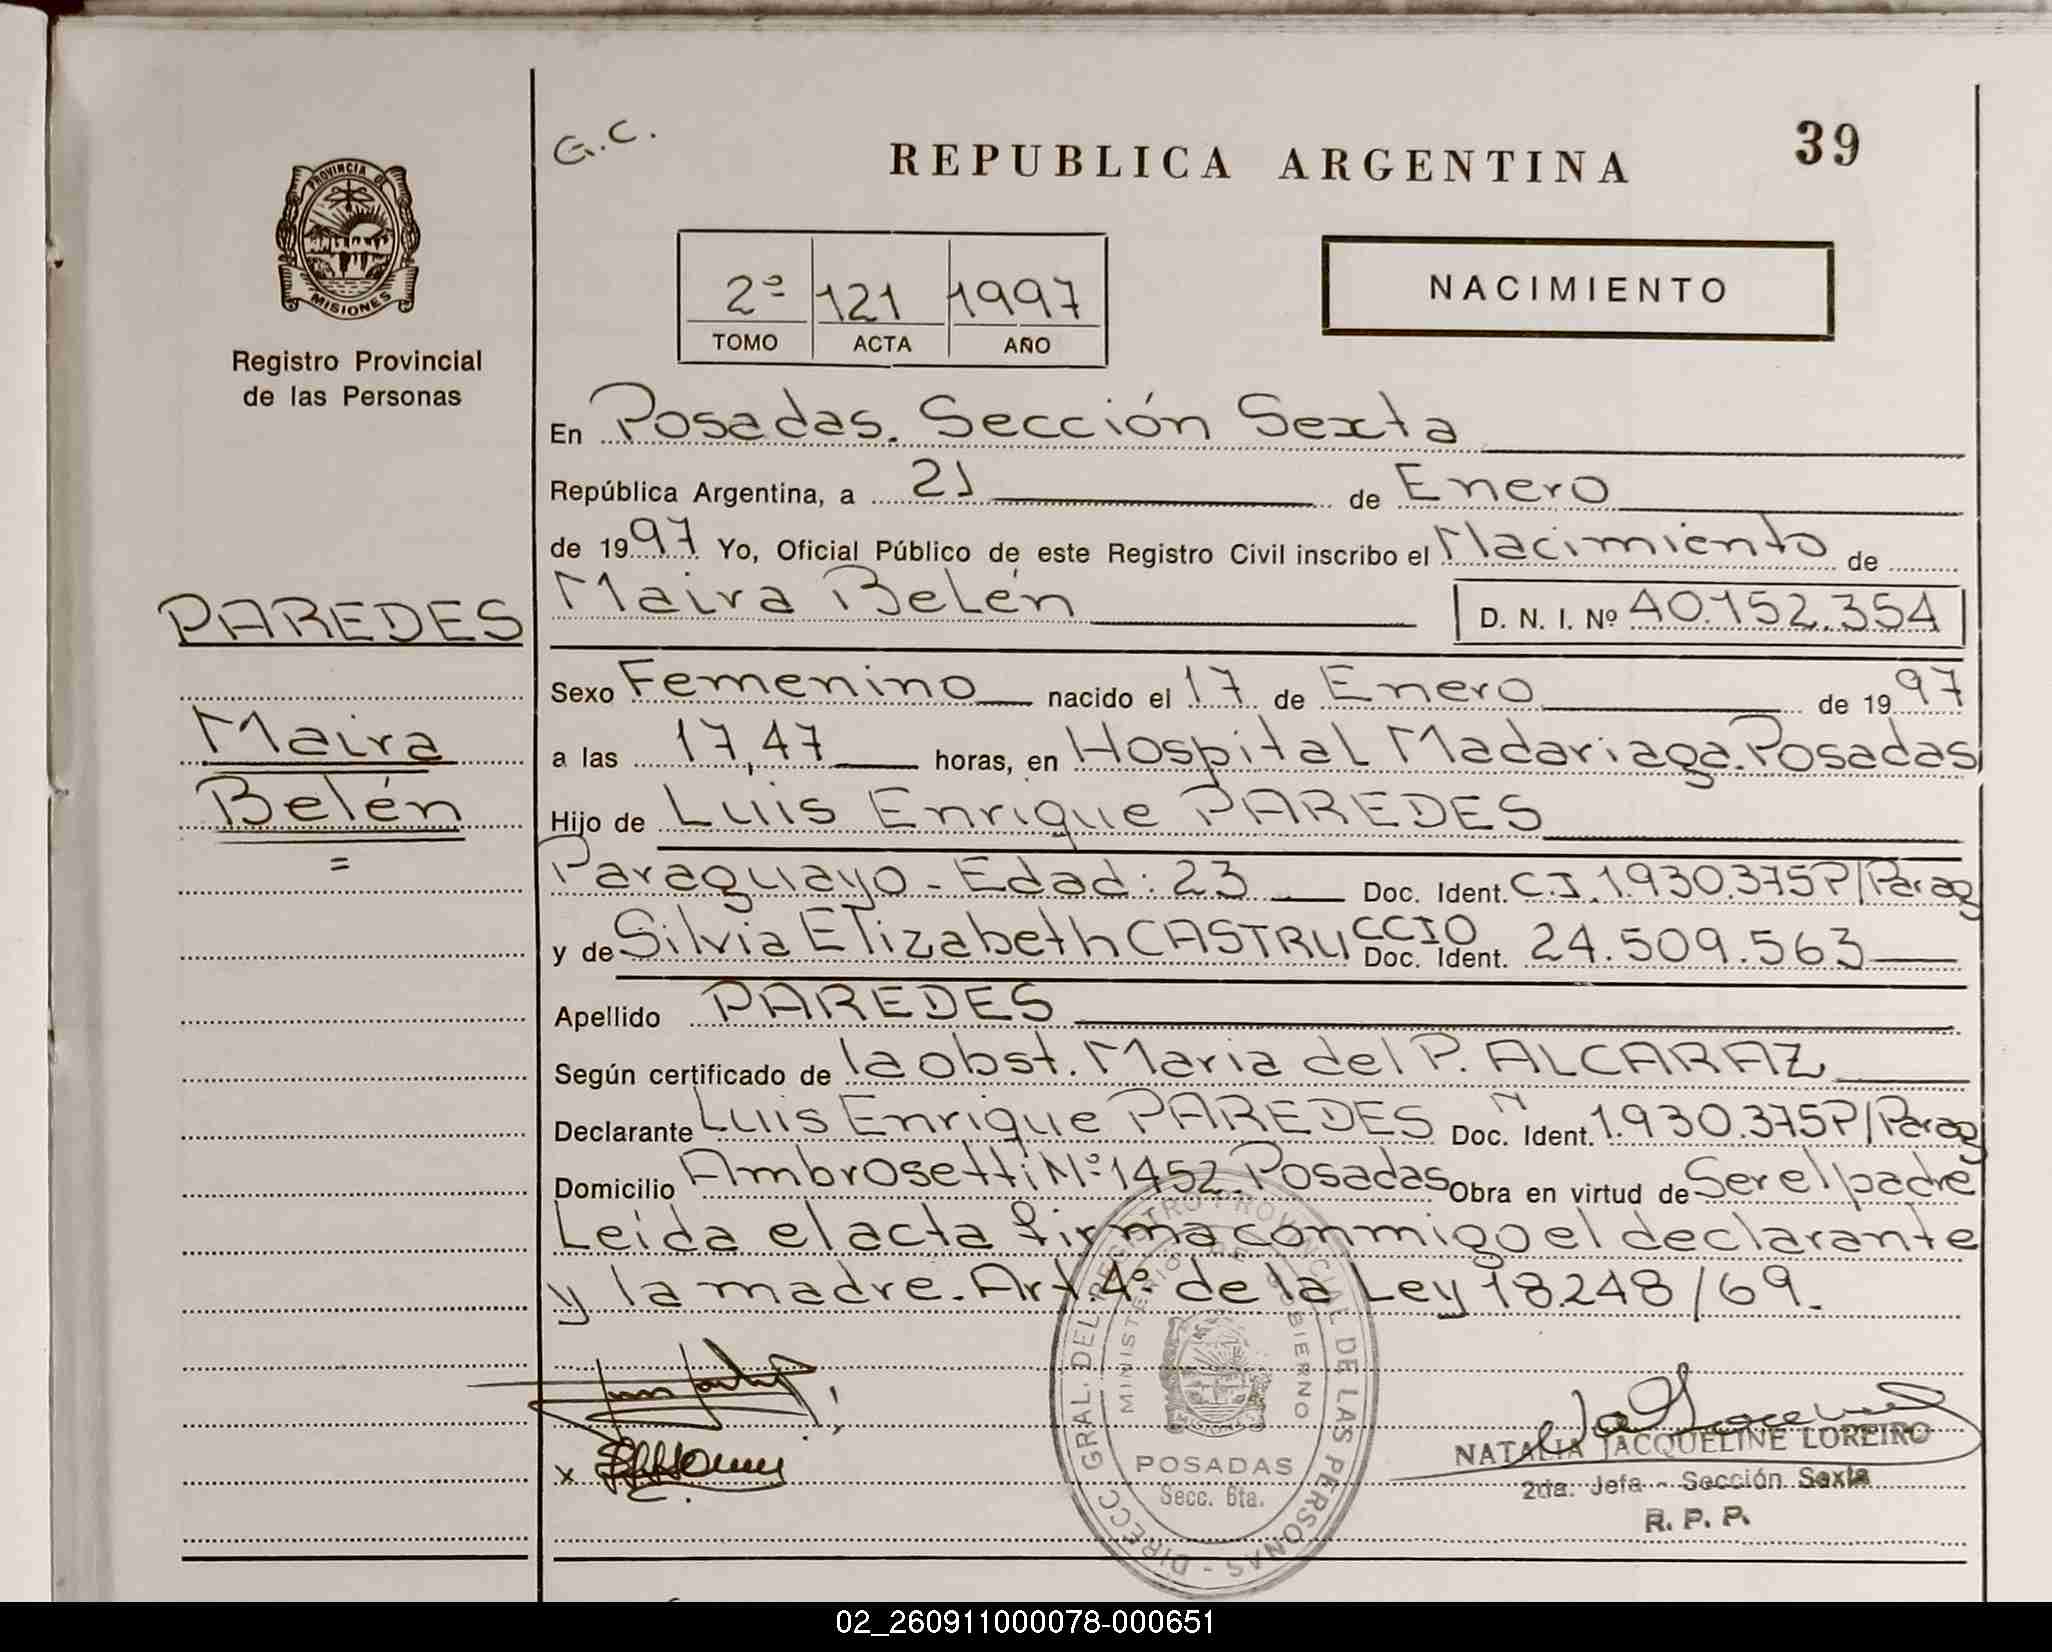 G.C.
REPUBLICA ARGENTINA
39
PROVINCIA DE
MISIONES
Registro Provincial
de las Personas
2º 121 1997
TOMO ACTA AÑO
NACIMIENTO
En Posadas. Sección Sexta
República Argentina, a 21 de Enero
de 1997 Yo, Oficial Público de este Registro Civil inscribo el Nacimiento de
Maira Belén D. N. I. Nº 40.152.354
PAREDES
Maira
Belén
=
Sexo Femenino nacido el 17 de Enero de 1997
a las 17,47 horas, en Hospital Madariaga. Posadas
Hijo de Luis Enrique PAREDES
Paraguayo - Edad: 23 Doc. Ident. C.I. 1.930.375P/Parag
y de Silvia Elizabeth CASTRUCCIO Doc. Ident. 24.509.563
Apellido PAREDES
Según certificado de la obst. Maria del P. ALCARAZ
Declarante Luis Enrique PAREDES Doc. Ident. 1.930.375P/Parag
Domicilio Ambrosetti Nº 1452. Posadas Obra en virtud de Ser el padre
Leída el acta firma conmigo el declarante
y la madre. Art. 4º de la Ley 18.248/69.
DIRECC GRAL. DEL REGISTRO PROVINCIAL DE LAS PERSONAS -
MINISTERIO DE GOBIERNO
POSADAS
Secc. 6ta.
x
NATALIA JACQUELINE LOREIRO
2da. Jefa - Sección Sexta
R. P. P.
02_260911000078-000651